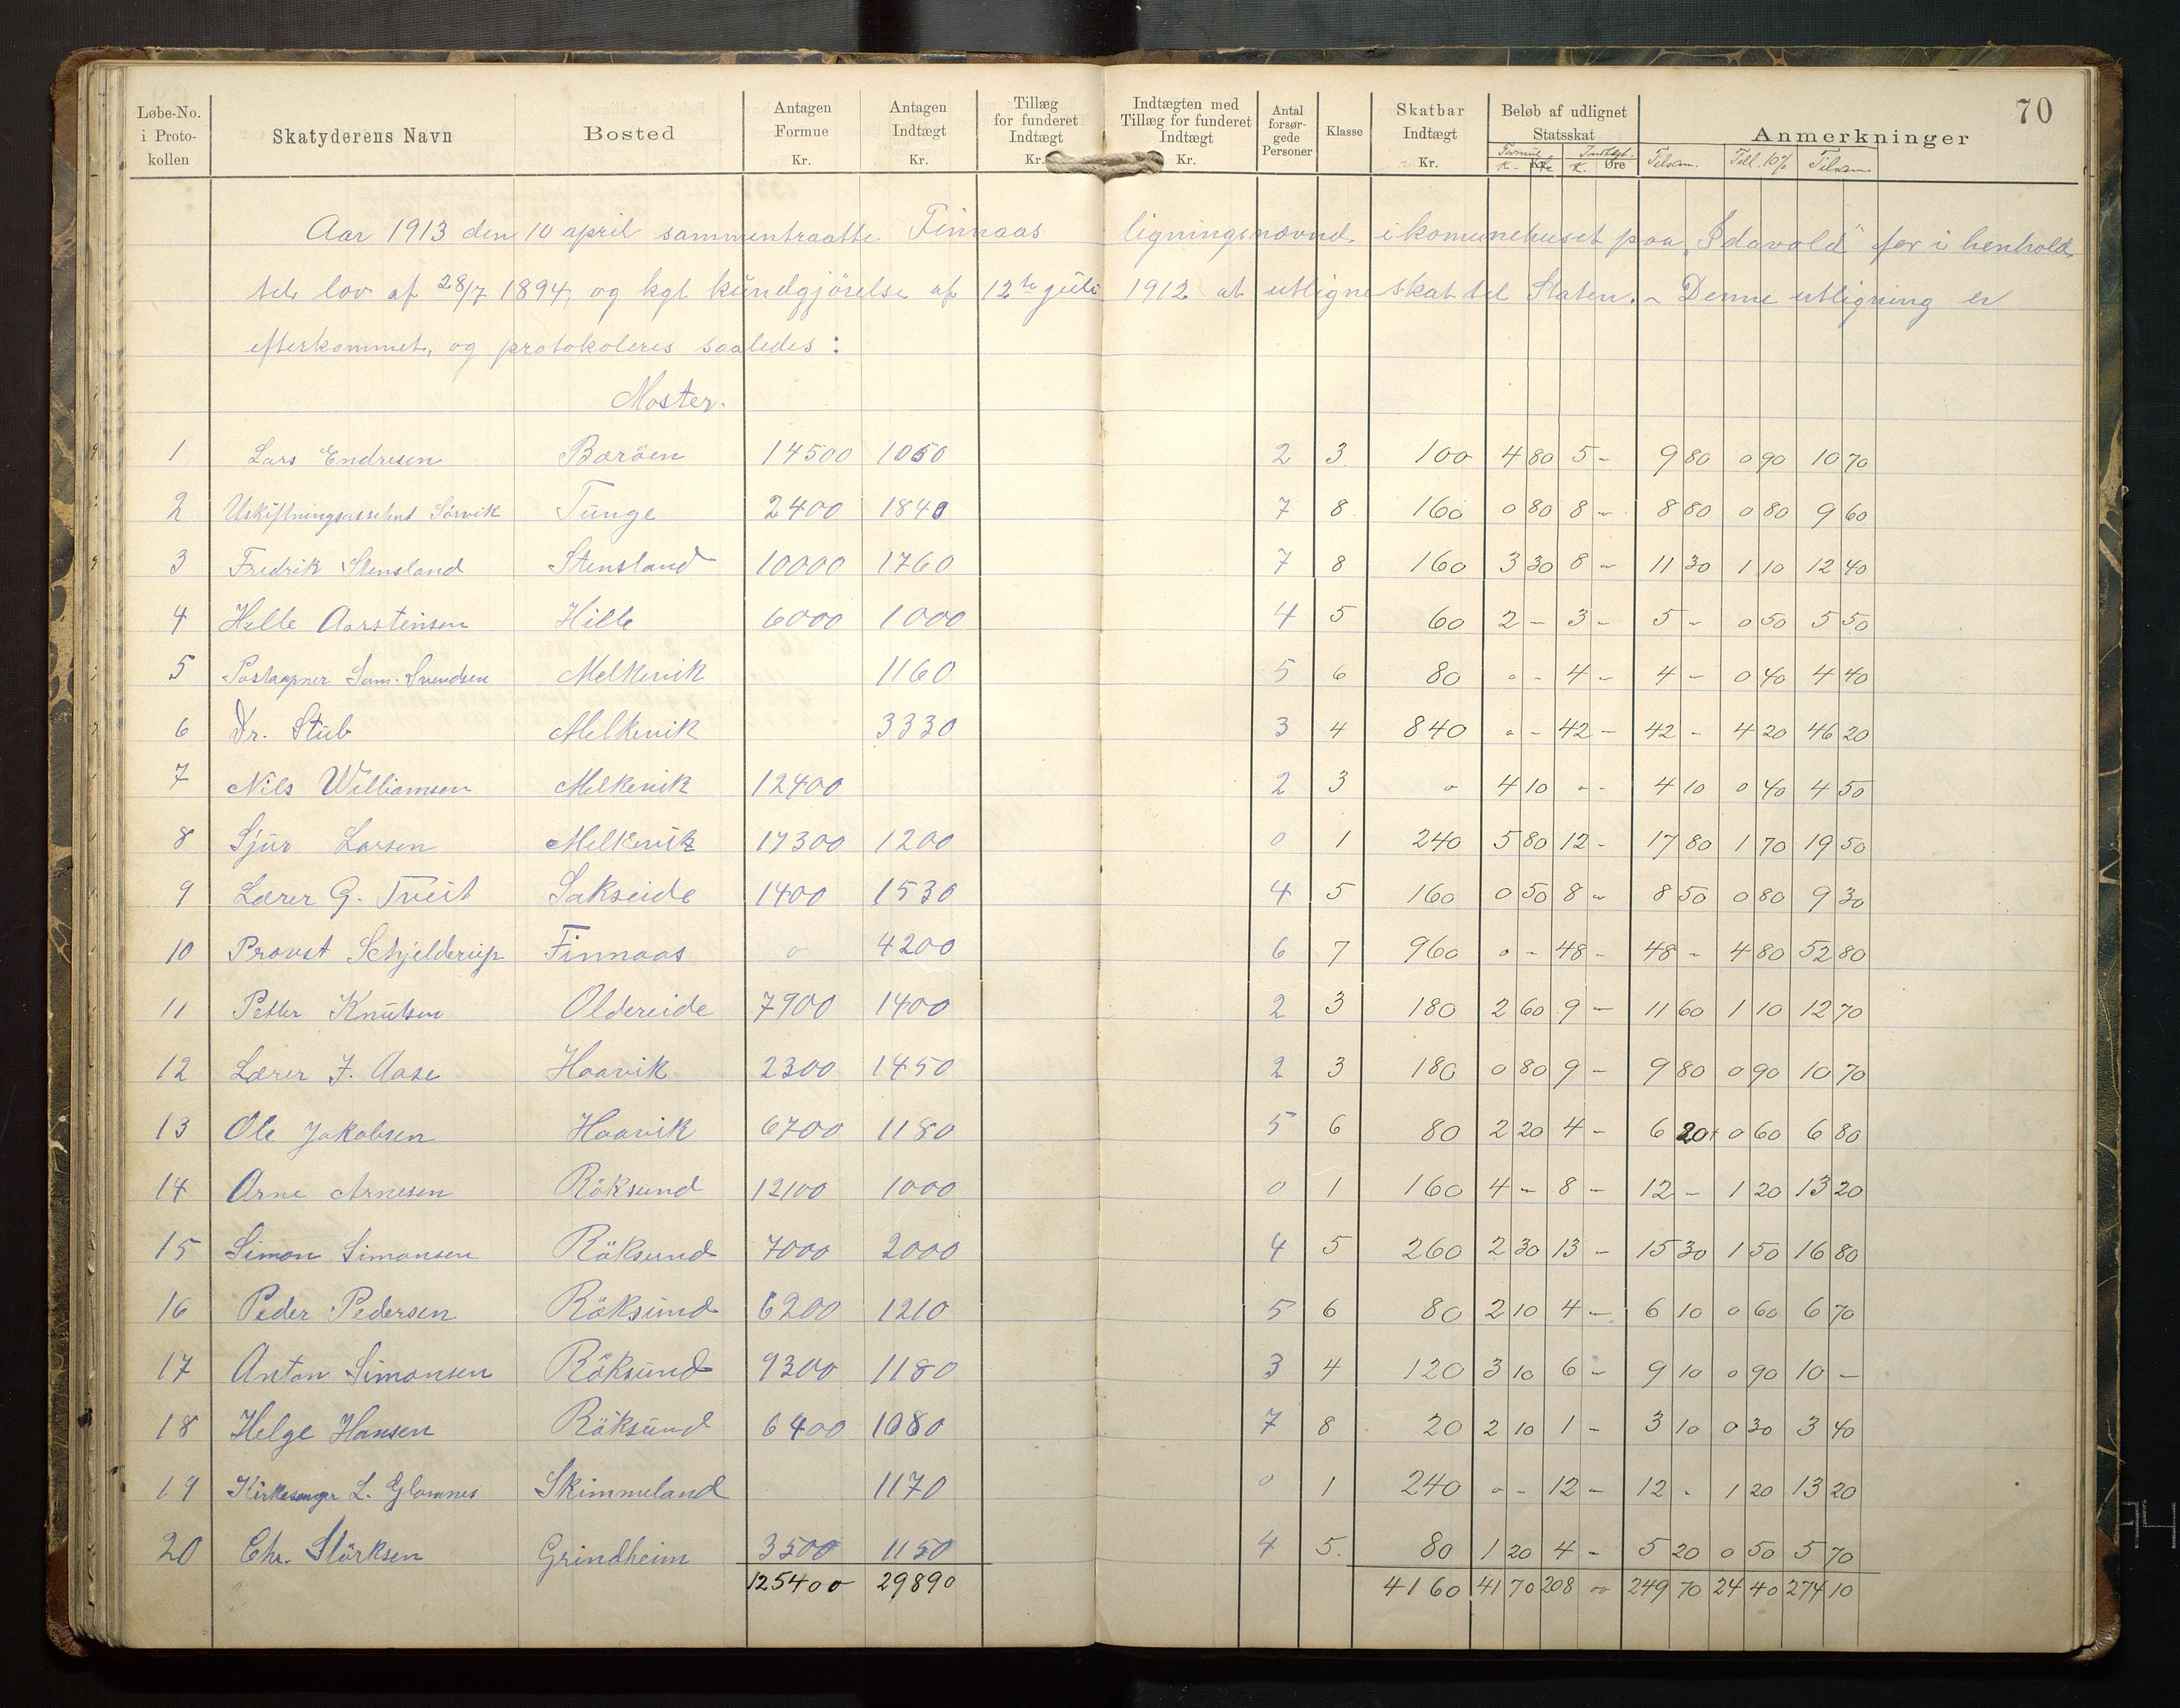 70
Løbe-No. i Proto-kollen | Skatyderens Navn | Bosted | Antagen Formue Kr. | Antagen Indtægt Kr. | Tillæg for funderet Indtægt Kr. | Indtægten med Tillæg for funderet Indtægt Kr. | Antal forsør-gede Personer | Klasse | Skatbar Indtægt Kr. | Beløb af udlignet Statsskat Formue K. Indtægt. K. Øre | Anmerkninger Tilsam. Till. 10% Tilsam
Aar 1913 den 10 april sammentraatte Finnaas ligningsnævnd i komunehuset paa "Idavold" for i henhold
til lov af 28/7 1894, og kgl kundgjörelse af 12te juli 1912 at utligne skat til Staten. - Denne utligning er
efterkommet, og protokoleres saaledes:
Moster.
1 Lars Endresen Boröen 14500 1050 2 3. 100 4 80 5 - 9 80 0 90 10 70
2 Utskiftningsassistent Sörvik Tunge 2400 1840 7 8 160 0 80 8 - 8 80 0 80 9 60
3 Fredrik Stensland Stensland 10000 1760 7 8 160 3 30 8 - 11 30 1 10 12 40
4 Helle Aarstensen Hille 6000 1000 4 5 60 2 - 3 - 5 - 0 50 5 50
5 Postaapner Sam. Svendsen Melkevik 1160 5 6 80 0 - 4 - 4 - 0 40 4 40
6 Dr. Stub Melkevik 3330 3 4 840 0 - 42 - 42 - 4 20 46 20
7 Nils Williamsen Melkevik 12400 2 3 0 4 10 0 - 4 10 0 40 4 50
8 Sjur Larsen Melkevik 17300 1200 0 1 240 5 80 12 - 17 80 1 70 19 50
9 Lærer G. Tveit Sakseide 1400 1530 4 5 160 0 50 8 - 8 50 0 80 9 30
10 Provst Schjelderup Finnaas 0 4200 6 7 960 0 - 48 - 48 - 4 80 52 80
11 Petter Knutsen Oldereide 7900 1400 2 3 180 2 60 9 - 11 60 1 10 12 70
12 Lærer J. Aase Haavik 2300 1450 2 3 180 0 80 9 - 9 80 0 90 10 70
13 Ole Jakobsen Haavik 6700 1180 5 6 80 2 20 4 - 6 20 0 60 6 80
14 Arne Arnesen Röksund 12100 1000 0 1 160 4 - 8 - 12 - 1 20 13 20
15 Simon Simonsen Röksund 7000 2000 4 5 260 2 30 13 - 15 30 1 50 16 80
16 Peder Pedersen Röksund 6200 1210 5 6 80 2 10 4 - 6 10 0 60 6 70
17 Anton Simonsen Röksund 9300 1180 3 4 120 3 10 6 - 9 10 0 90 10 -
18 Helge Hansen Röksund 6400 1080 7 8 20 2 10 1 - 3 10 0 30 3 40
19 Kirkesanger L. Glomnes Skimmeland 1170 0 1 240 0 - 12 - 12 - 1 20 13 20
20 Chr. Störksen Grindheim 3500 1150 4 5. 80 1 20 4 - 5 20 0 50 5 70
125400 29890 4160 41 70 208 00 249 70 24 40 274 10